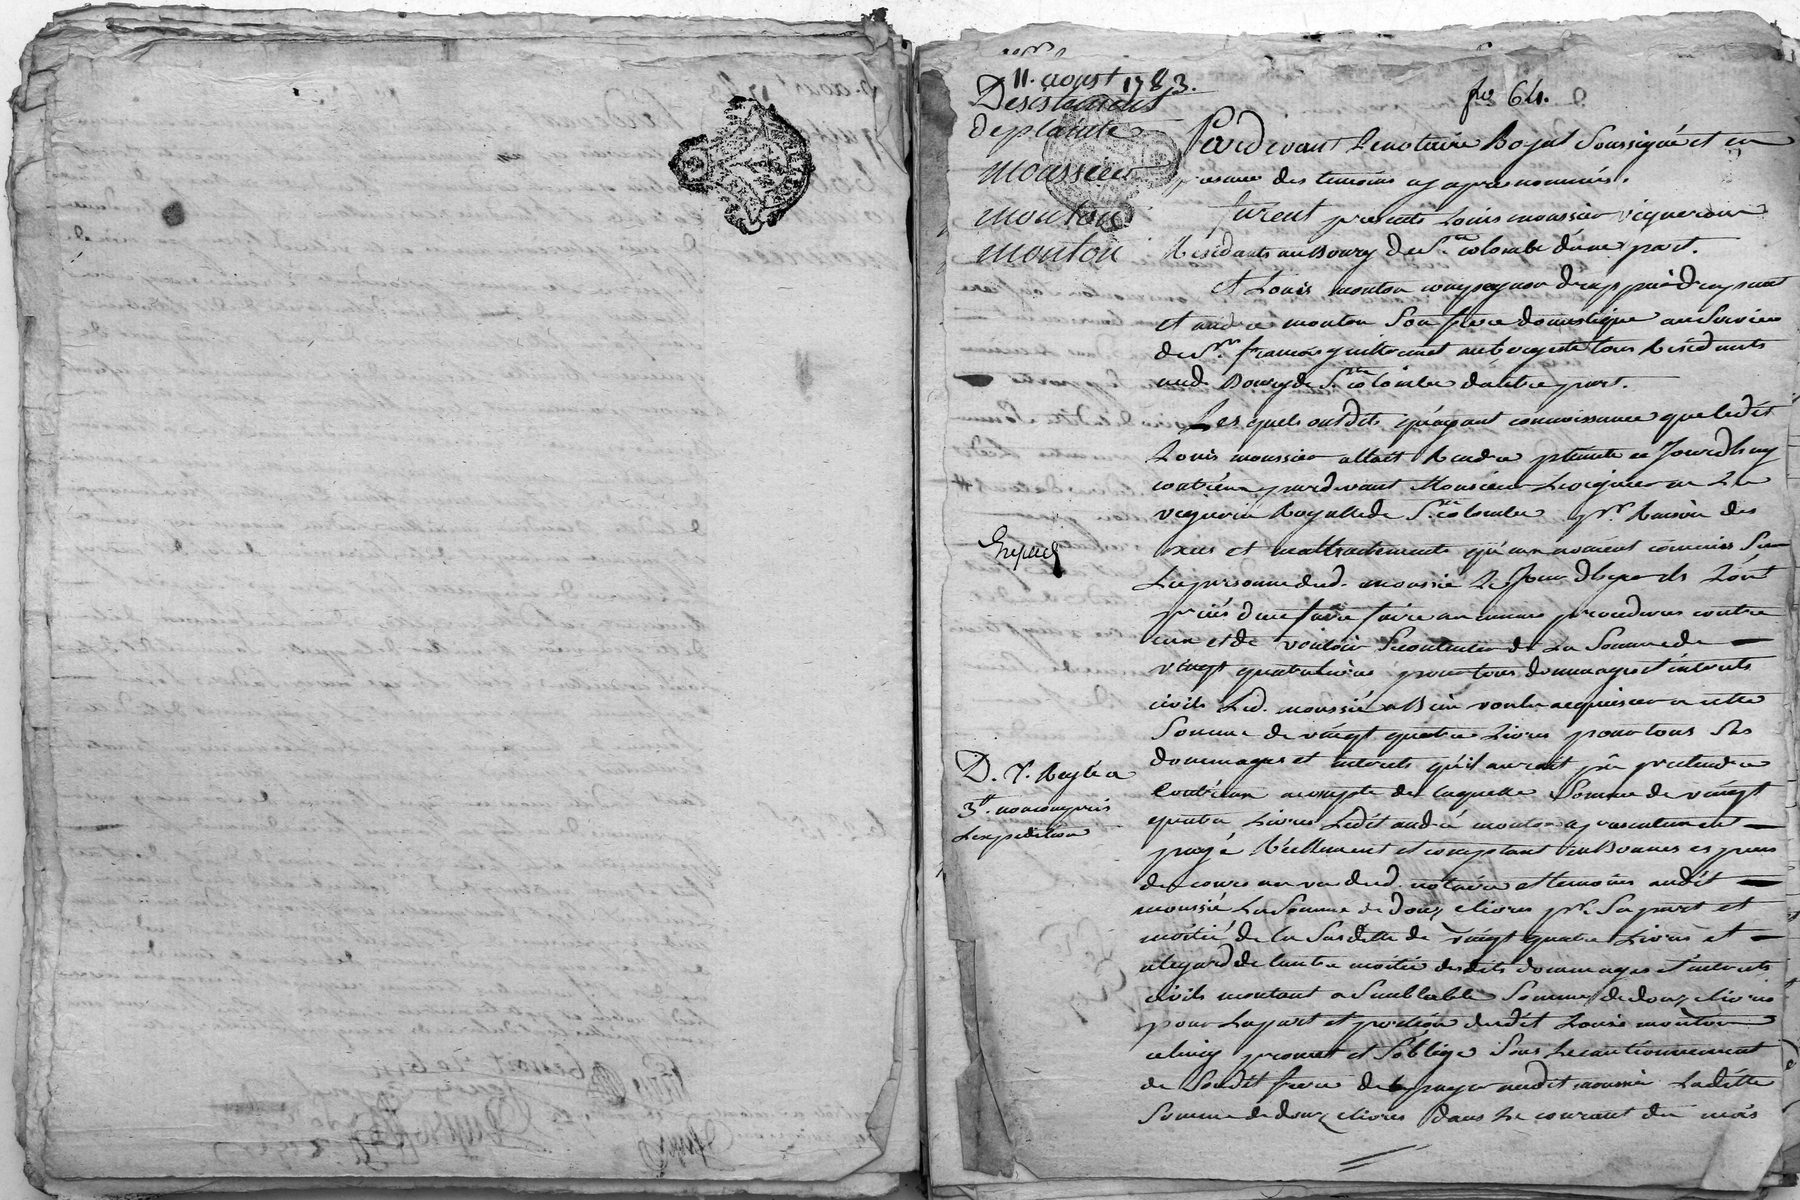 11. aoust 1783.
Desistement
de plainte
moussier
mouton
mouton
fo 64.
Pardevant Le notaire Royal Soussigné et en
presence des temoins cy apres nommés.
furent presents Louis moussier vigneron
Residants au Bourg de Ste. colombe d'une part.
et Louis mouton compagnon
et andre mouton Son frere domestique au Service
de Sr. francois guillermet aubergiste tous Residants
aud. Bourg de Ste. colombe dautre part.
Les quels ont dits qu'ayant connoissance que ledit
Louis moussier allait Rendre plainte ce Jourdhuy
contr'eux pardevant Monsieur Le viguier en La
viguerie Royalle de Ste. colombe pr. Raison des
exces et maltraitements qu'eux avoient commis Sur
La personne dud. moussié Le Jour d'hyer ils L'ont
priés de ne faire faire aucunes procedures contre
eux et de vouloir Se contenter de La Somme de
vingt quatre Livres pour tous dommages et interets
civils Led. moussié a Bien voulu acquiescer a cette
Somme de vingt quatre Livres pour tous Ses
dommages et interets qu'il auroit pû pretendre
Contr'eux acompte de laquelle Somme de vingt
quatre Livres Ledit andré mouton a presentement
payé Réellement et comptant en Bonnes especes
de cours au vu dud. notaire et temoins audit
moussié La Somme de douze livres pr. Sa part et
moitié de la Susditte de vingt quatre Livres et
a legard de lautre moitié desdits dommages et interets
civils montant a Semblable Somme de douze livres
pour La part et portion dudit Louis mouton
celuicy promet et S'oblige Sous Le cautionnement
de Sondit frere de payer audit moussié Laditte
Somme de douze livres dans Le courant du mois
Expedié
D. X. Reglé a
3lt. non compris
Lexpedition